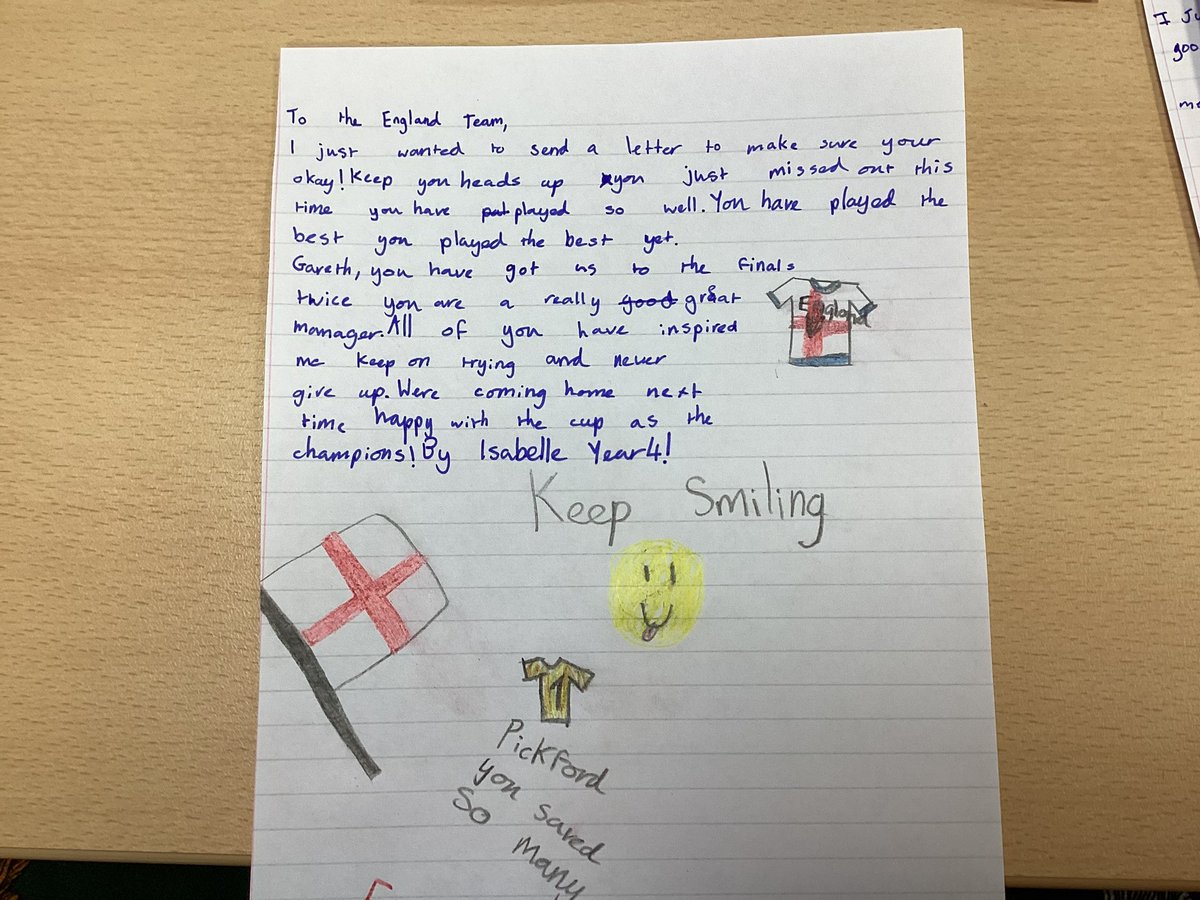 To the England Team,
I just wanted to send a letter to make sure your
okay! Keep you heads up you just missed out this
time you have played so well. You have played the
best you played the best yet.
Gareth, you have got us to the finals
twice you are a really good great
manager. All of you have inspired
me keep on trying and never
give up. Were coming home next
time happy with the cup as the
champions! By Isabelle Year4!
England
Keep Smiling
1
Pickford
you saved
So many
I Ju
goo
me